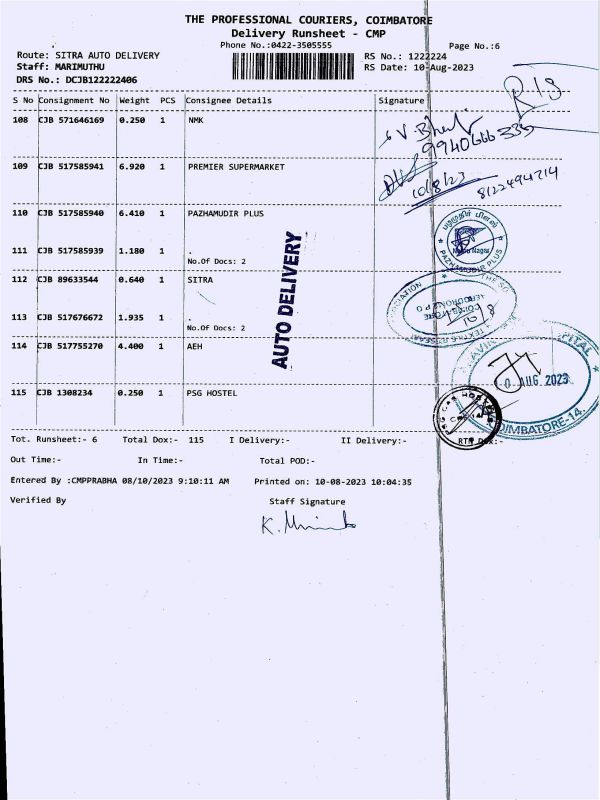 THE PROFESSIONAL COURIERS, COIMBATORE
Delivery Runsheet - CMP
Phone No.:0422-3505555
Page No.:6
Route: SITRA AUTO DELIVERY
RS No.: 1222224
Staff: MARIMUTHU
RS Date: 10-Aug-2023
DRS No.: DCJB122222406
S No Consignment No Weight PCS Consignee Details Signature
108 CJB 571646169 0.250 1 NMK
9940666335
109 CJB 517585941 6.920 1 PREMIER SUPERMARKET
10/8/23
8122494714
110 CJB 517585940 6.410 1 PAZHAMUDIR PLUS
PAZHAMUDIR PLUS
111 CJB 517585939 1.180 1 .
No.Of Docs: 2
AUTO DELIVERY
112 CJB 89633544 0.640 1 SITRA
113 CJB 517676672 1.935 1 .
No.Of Docs: 2
114 CJB 517755270 4.400 1 AEH
AUG 2023
COIMBATORE-14
115 CJB 1308234 0.250 1 PSG HOSTEL
Tot. Runsheet:- 6 Total Dox:- 115 I Delivery:- II Delivery:- RTO Dox:-
Out Time:- In Time:- Total POD:-
Entered By :CMPPRABHA 08/10/2023 9:10:11 AM Printed on: 10-08-2023 10:04:35
Verified By Staff Signature